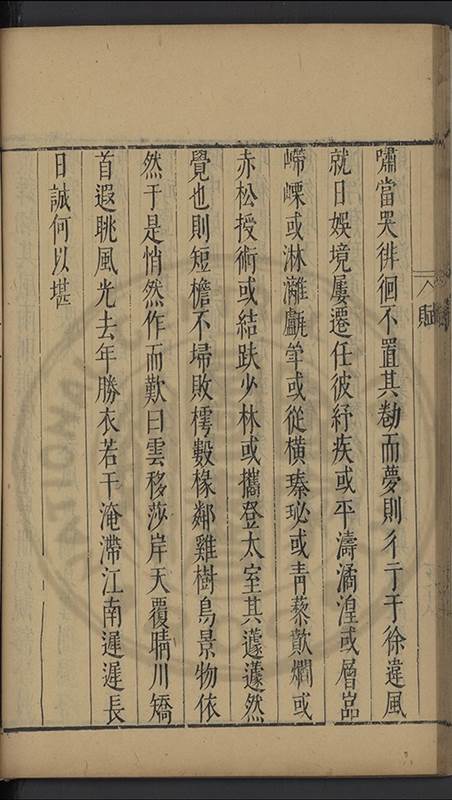 嘯當哭徘徊不置其勌而夢則彳亍于徐違風
就日娛境屢遷任彼紓疾或平濤潏湟或層嵓
嵽嵲或淋灕觑竿或從橫瑧珌或靑藜歊爓或
赤松授術或結趺少林或攜登太室其蘧蘧然
覺也則短檐不埽敗樗數椽鄰雞樹鳥景物依
然于是悄然作而歎曰雲移莎岸天覆晴川矯
首遐眺風光去年勝衣若干淹滯江南遲遲長
日誠何以堪
賦